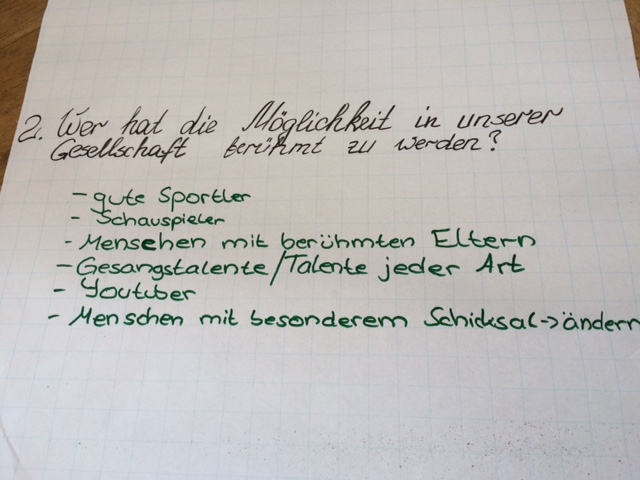 2. Wer hat die Möglichkeit in unserer
Gesellschaft berühmt zu werden?
- gute Sportler
- Schauspieler
- Menschen mit berühmten Eltern
- Gesangstalente/Talente jeder Art
- Youtuber
- Menschen mit besonderem Schicksal -> ändern